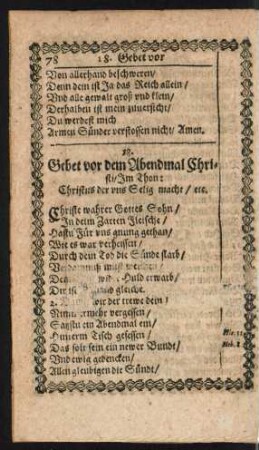 78 18. Gebet vor
Von allerhand beschweren/
Denn dem ist Ja das Reich allein/
Vnd alle gewalt groß vnd klein/
Derhalben ist mein zuuersicht/
Du werdest mich
Armen Sünder verstossen nicht/ Amen.
18.
Gebet vor dem Abendmal Chri-
sti/ Im Thon:
Christus der vns Selig macht/ etc.
Christe wahrer Gottes Sohn/
In deim Zarten Fleische/
Hastu Für vns gnung gethan/
Wie es war verheissen/
Durch dem Tod die Sünde starb/
Huld erwarb/
2. wir der trewe dein
Nimmermehr vergessen/
Satztu ein Abendmal ein/
Hinterm Tisch gesessen/
Das solt sein ein newer Bundt/
Vnd ewig gedencken/
Allen gleubigen die Sündt/